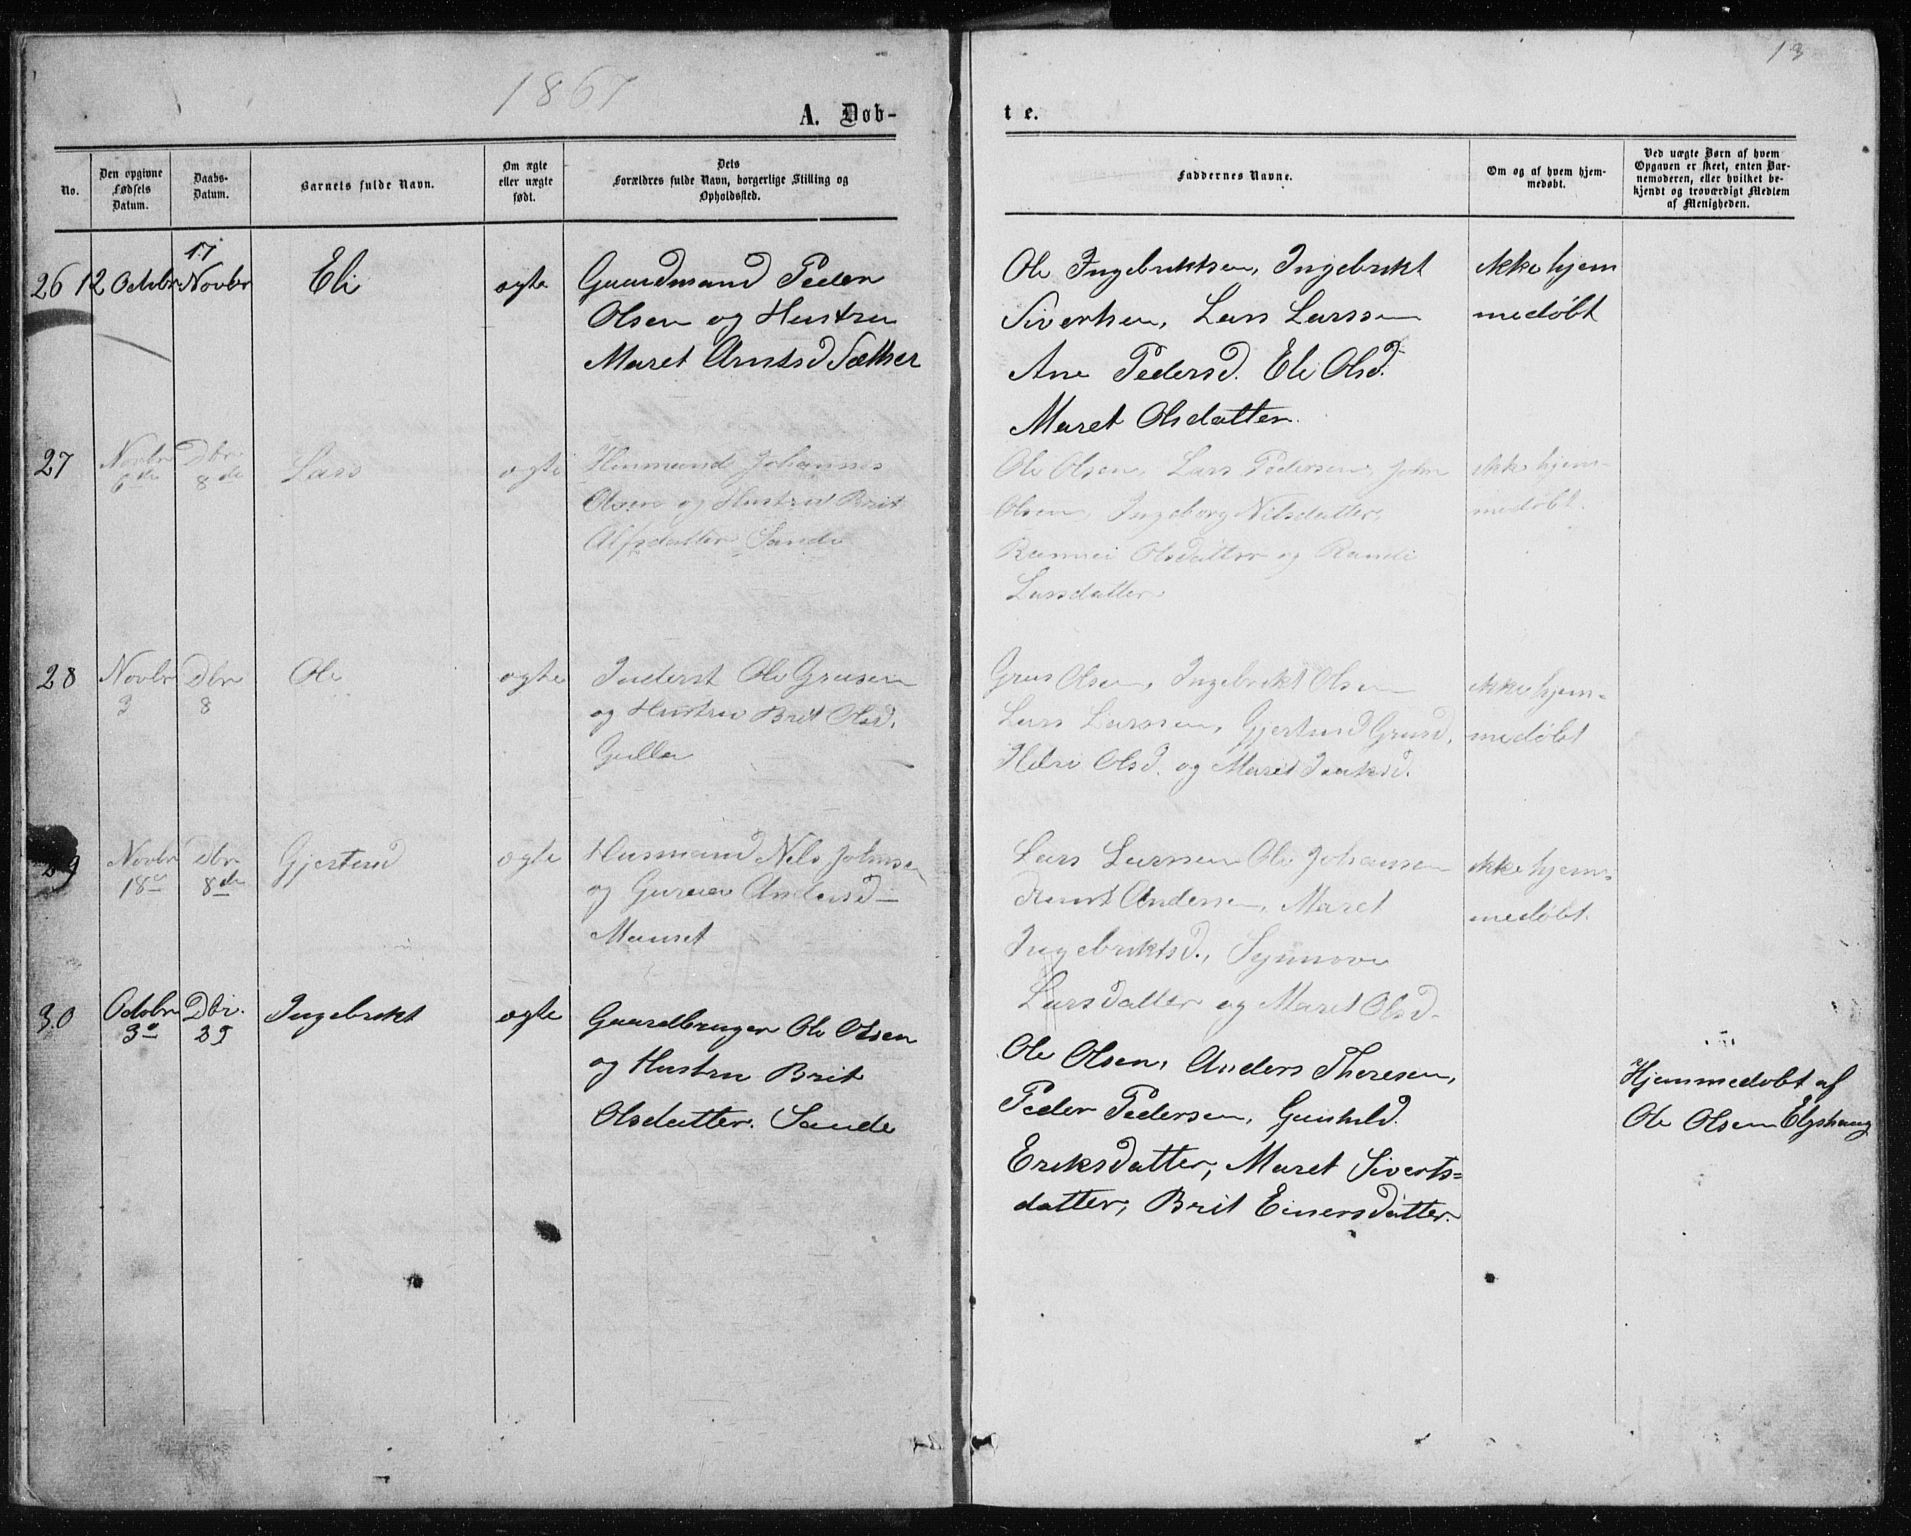 1867
13
A. Døb-
te.
No.
Den opgivne Fødsels Datum.
Daabs-Datum.
Barnets fulde Navn.
Om ægte eller uægte født.
Dets Forældres fulde Navn, borgerlige Stilling og Opholdssted.
Faddernes Navne.
Om og af hvem hjemmedøbt.
Ved uægte Børn af hvem Opgaven er skeet, enten Barnemoderen, eller hvilket bekjendt og troværdigt Medlem af Menigheden.
26 12 Octobr 17 Novbr Eli ægte
Gaardmand Peder
Olsen og Hustru
Maret Arntsd Sæther
Ole Ingebriktsen, Ingebrikt
Sivertsen, Lars Larssen
Ane Pedersd. Eli Olsd.
Maret Olsdatter.
ikke hjem
medøbt
27 Novbr 6de Dbr 8de Lars ægte
Husmand Johannes
Olsen og Hustru Brit
Alfsdatter Sande
Ole Olsen, Lars Pedersen, John
Olsen, Ingeborg Nilsdatter,
Rannei Olsdatter og Randi
Larsdatter
ikke hjem-
medøbt.
28 Novbr 3 Dbr 8 Ole ægte
Inderst Ole Grusen
og Hustru Brit Olsd.
Gulla
Grus Olsen, Ingebrikt Olsen
Lars Larssen, Gjertrud Grusd,
Olsd. og Maret
ikke hjem-
medøbt
29 Novbr 18de Dbr 8de Gjertrud ægte
Husmand Nils Johnsen
og Andersd
Ole Johansen
Andersen, Maret
Ingebriktsd., Synnove
Larsdatter og Maret Olsd.
ikke hjem-
medøbt.
30 Octobr 3 Dbr. Ingebrikt ægte
Gaardbruger Ole Olsen
og Hustru Brit
Olsdatter. Sande
Ole Olsen, Anders Thoresen,
Peder Pedersen, Gunhild
Eriksdatter, Maret Siverts=
datter, Brit Einersdatter.
Hjemmedøbt af
Ole Olsen Elgshaug